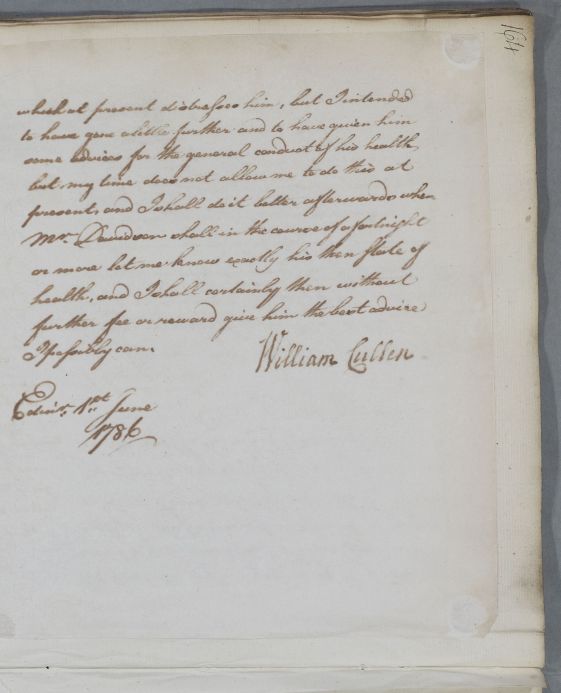 164
which at present distresses him, but I intended
to have gone a little further and to have given him
some advices for the general conduct of his health,
but my time does not allow me to do this at
present, and I shall do it better afterwards when
Mr. Davidson shall in the course of a fortnight
or more let me know exactly his then state of
health, and I shall certainly then without
further fee or reward give him the best advice
I possibly can.
William Cullen
Edinr. 1st June
1786